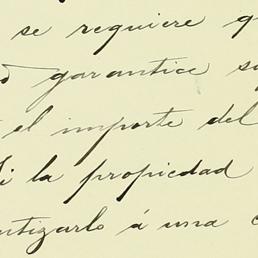 se requiere
garantice
el importe del
la propiedad
á una